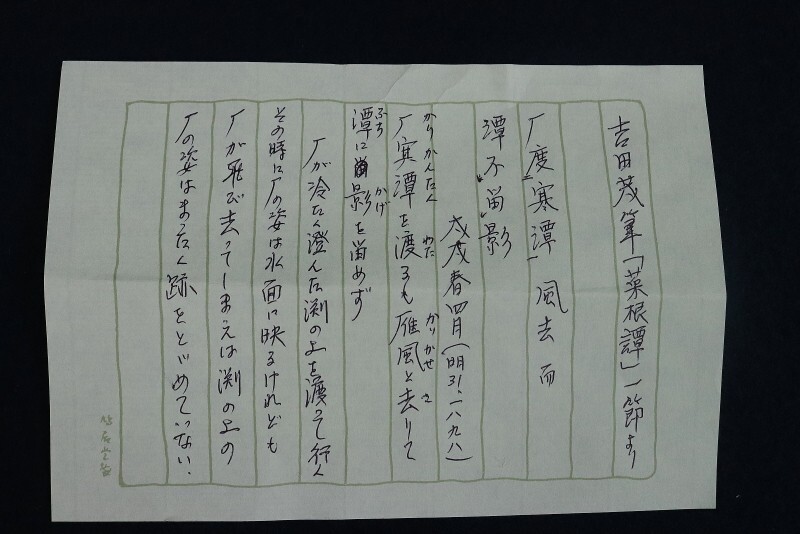 吉田茂筆「菜根譚」一節より
厂度寒潭 風去而
潭不留影
戊戌春四月(明31.一八九八)
厂寒潭を渡るも雁風と去りて
かりかんたん わた かりかぜ さ
潭に影を留めず
ふち かげ
厂が冷たく澄んだ渕の上を渡って行く
その時に厂の姿は水面に映るけれども
厂が飛び去ってしまえば渕の上の
厂の姿はまったく跡をとどめていない.